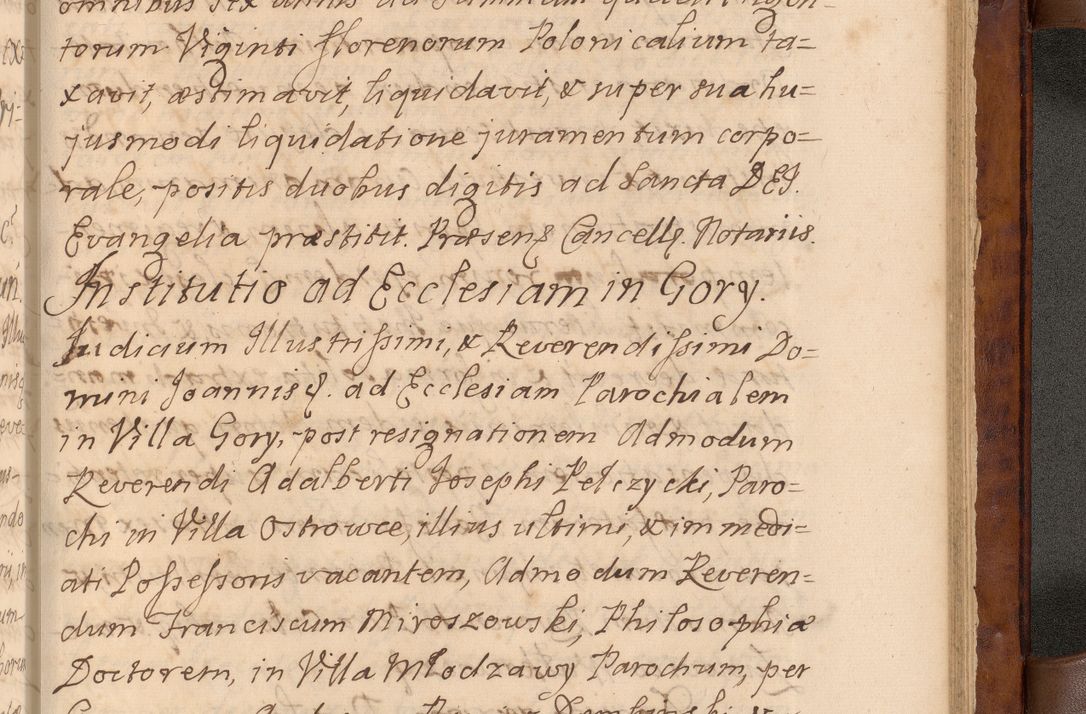 omnibus sex annis ad summam
torum Viginti florenorum Polonicalium ta=
xavit, æstimavit, liquidavit, & super sua hu=
jusmodi liquidatione juramentum corpo=
rale, positis duobus digitis ad Sancta DEI.
Evangelia præstitit. Præsen. Cancell. Notariis.
Institutio ad Ecclesiam in Gory.
Judicium Illustrissimi, & Reverendissimi Do=
mini Joannis &. ad Ecclesiam Parochialem
in Villa Gory, post resignationem Admodum
Reverendi Adalberti Josephi Pelczycki, Paro=
chi in Villa Ostrowce, illius ultimi, & immedi=
ati Possessoris vacantem, Admodum Reveren=
dum Franciscum Miroszowski, Philosophiæ
Doctorem, in Villa Młodzawy Parochum, per